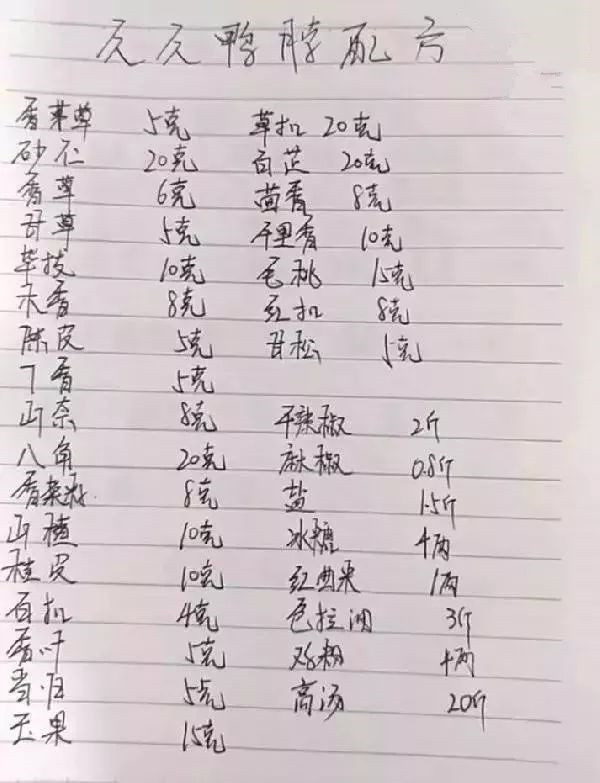 久久鸭脖配方
香茅草 5克 草扣 20克
砂仁 20克 白芷 20克
香草 6克 茴香 8克
甘草 5克 千里香 10克
毕技 10克 毛桃 15克
木香 8克 红扣 8克
陈皮 5克 甘松 5克
丁香 5克
山奈 8克 干辣椒 2斤
八角 20克 麻椒 0.8斤
香菜籽 8克 盐 1.5斤
山楂 10克 冰糖 4两
桂皮 10克 红曲米 1两
百扣 4克 色拉油 3斤
香叶 5克 鸡粉 4两
当归 5克 高汤 20斤
玉果 15克